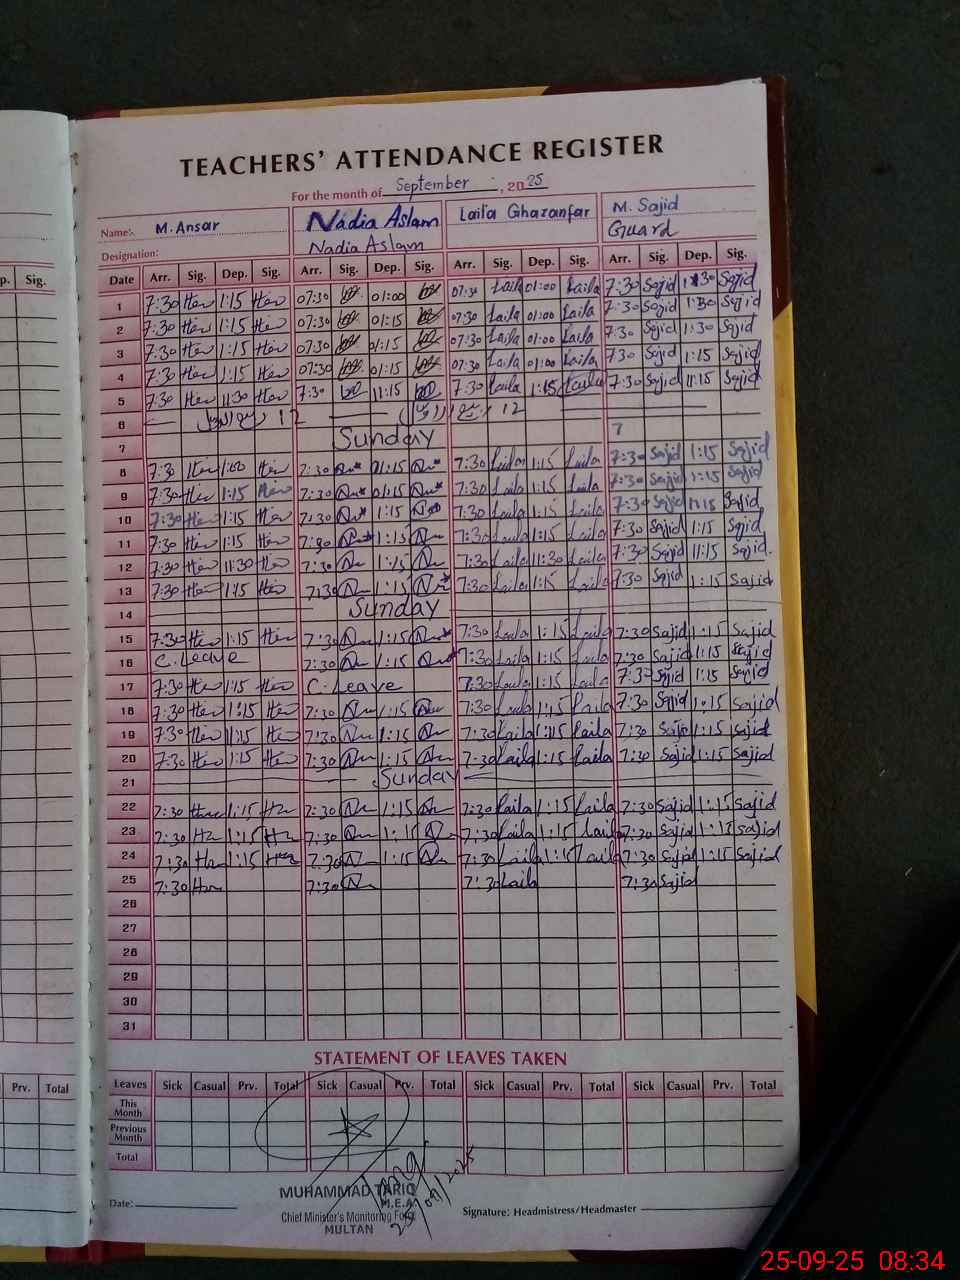 TEACHERS' ATTENDANCE REGISTER
For the month of September, 2025
Name:- M. Ansar Nadia Aslam Laila Ghazanfar M. Sajid
Designation: Nadia Aslam Guard
p. Sig. Date Arr. Sig. Dep. Sig. Arr. Sig. Dep. Sig. Arr. Sig. Dep. Sig. Arr. Sig. Dep. Sig.
1 7:30 1:15 07:30 01:00 07:30 Laila 01:00 Laila 7:30 Sajid 1:30 Sajid
2 7:30 1:15 07:30 01:15 07:30 Laila 01:00 Laila 7:30 Sajid 1:30 Sajid
3 7:30 1:15 07:30 01:15 07:30 Laila 01:00 Laila 7:30 Sajid 1:30 Sajid
4 7:30 1:15 07:30 01:15 07:30 Laila 01:00 Laila 7:30 Sajid 1:15 Sajid
5 7:30 11:30 7:30 11:15 7:30 Laila 1:15 Laila 7:30 Sajid 11:15 Sajid
6 12 ربیع الاول 12 ربیع الاول
7 Sunday
8 7:30 7:30 01:15 7:30 Laila 1:15 Laila 7:30 Sajid 1:15 Sajid
9 7:30 1:15 7:30 01:15 7:30 Laila 1:15 Laila 7:30 Sajid 1:15 Sajid
10 7:30 1:15 7:30 1:15 7:30 Laila 1:15 Laila 7:30 Sajid 1:15 Sajid
11 7:30 1:15 7:30 1:15 7:30 Laila 1:15 Laila 7:30 Sajid 1:15 Sajid
12 7:30 11:30 7:30 11:15 7:30 Laila 11:30 Laila 7:30 Sajid 11:15 Sajid
13 7:30 1:15 7:30 1:15 7:30 Laila 1:15 Laila 7:30 Sajid 1:15 Sajid
14 Sunday
15 7:30 1:15 7:30 1:15 7:30 Laila 1:15 Laila 7:30 Sajid 1:15 Sajid
16 C. Leave 7:30 1:15 7:30 Laila 1:15 Laila 7:30 Sajid 1:15 Sajid
17 7:30 1:15 C. Leave 7:30 Laila 1:15 Laila 7:30 Sajid 1:15 Sajid
18 7:30 1:15 7:30 1:15 7:30 Laila 1:15 Laila 7:30 Sajid 1:15 Sajid
19 7:30 11:15 7:30 1:15 7:30 Laila 1:15 Laila 7:30 Sajid 1:15 Sajid
20 7:30 1:15 7:30 1:15 7:30 Laila 1:15 Laila 7:30 Sajid 1:15 Sajid
21 Sunday
22 7:30 1:15 7:30 1:15 7:30 Laila 1:15 Laila 7:30 Sajid 1:15 Sajid
23 7:30 1:15 7:30 1:15 7:30 Laila 1:15 Laila 7:30 Sajid 1:15 Sajid
24 7:30 1:15 7:30 1:15 7:30 Laila 1:15 Laila 7:30 Sajid 1:15 Sajid
25 7:30 7:30 7:30 Laila 7:30 Sajid
26
27
28
29
30
31
STATEMENT OF LEAVES TAKEN
Prv. Total Leaves Sick Casual Prv. Total Sick Casual Prv. Total Sick Casual Prv. Total Sick Casual Prv. Total
This Month
Previous Month
Total
Date: Signature: Headmistress/Headmaster
MUHAMMAD TARIQ
M.E.A.
Chief Minister's Monitoring Force
MULTAN
25-09-25 08:34